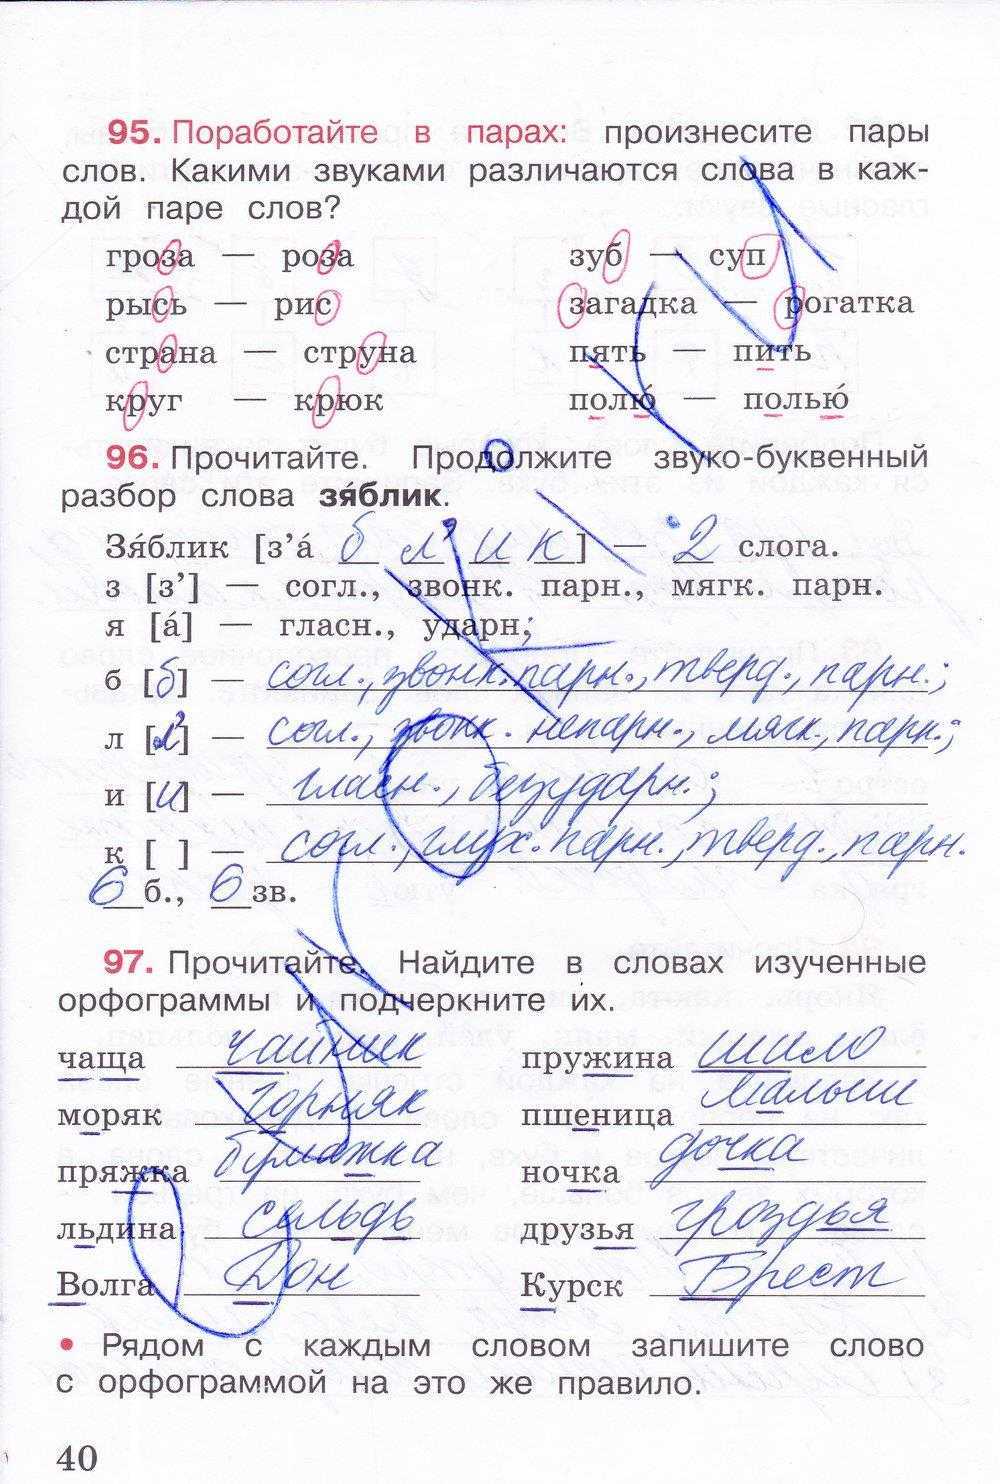 95. Поработайте в парах: произнесите пары
слов. Какими звуками различаются слова в каж-
дой паре слов?
гроза — роза зуб — суп
рысь — рис загадка — рогатка
страна — струна пять — пить
круг — крюк полю́ — полью́
96. Прочитайте. Продолжите звуко-буквенный
разбор слова зя́блик.
Зя́блик [з’а́ б л’ и к] — 2 слога.
з [з’] — согл., звонк. парн., мягк. парн.
я [а́] — гласн., ударн.;
б [б] — согл., звонк. парн., тверд., парн.;
л [л’] — согл., звонк. непарн., мягк., парн.;
и [и] — гласн., безударн.;
к [ ] — согл., глух. парн., тверд., парн.
6 б., 6 зв.
97. Прочитайте. Найдите в словах изученные
орфограммы и подчеркните их.
чаща чайник пружина шило
моряк горняк пшеница малыш
пряжка бумажка ночка дочка
льдина сельдь друзья гроздья
Волга Дон Курск Брест
• Рядом с каждым словом запишите слово
с орфограммой на это же правило.
40